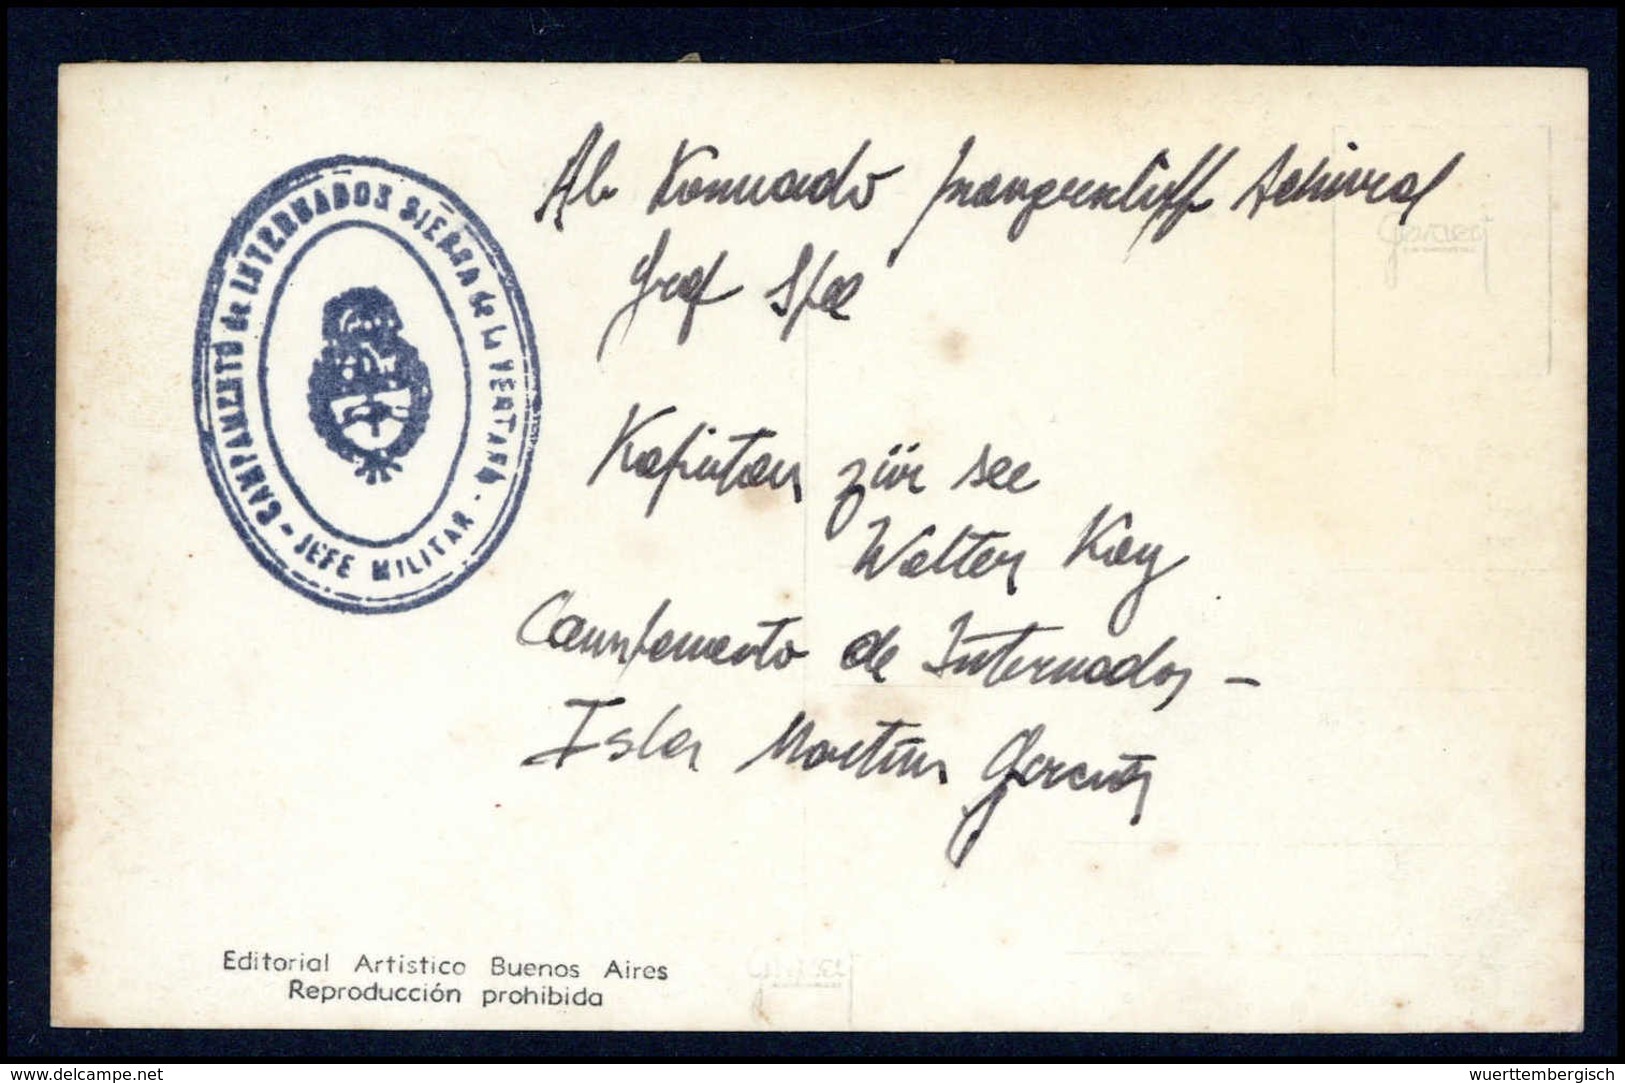 CAMPAMENTO de INTERNADOS SIERRA de la VENTANA
- JEFE MILITAR -
Al Komando Admiral
Graf Spee
Kapitan zür see
Walter Kay
Campamento de Internados -
Isla Martín García
Gevaert
Editorial Artistico Buenos Aires
Reproducción prohibida
www.delcampe.net
wuerttembergisch